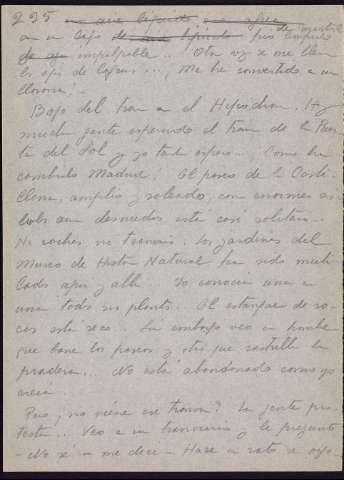 235
impalpable... Otra vez se me llenan
los ojos de lagrimas..., Me he convertido en un
llorona!-
Bajo del tran en el Hipodromo. Hay
mucha gente esperando el tran de la Puer-
ta del Sol y yo tambien espero... ¡Como ha
cambiado Madrid! El paseo de la Caste-
llana, amplio y soleado, con enormes ar-
boles aun desnudos, esta casi solitario...
Ni coches, ni tranvias. Los jardines del
Museo de Historia Natural han sido muti-
lados aqui y alli. Yo conocia una a
una todas sus plantas. El estanque de ro-
cas esta seco... Sin embargo veo un hombre
que barre los paseos y otro que rastrilla la
pradera... No esta abandonado como yo
creia.
Pero ¿no viene ese tranvia? La gente pro-
testa... Veo a un tranviario y le pregunto
- No sé - me dice - Hace un rato se oyo-